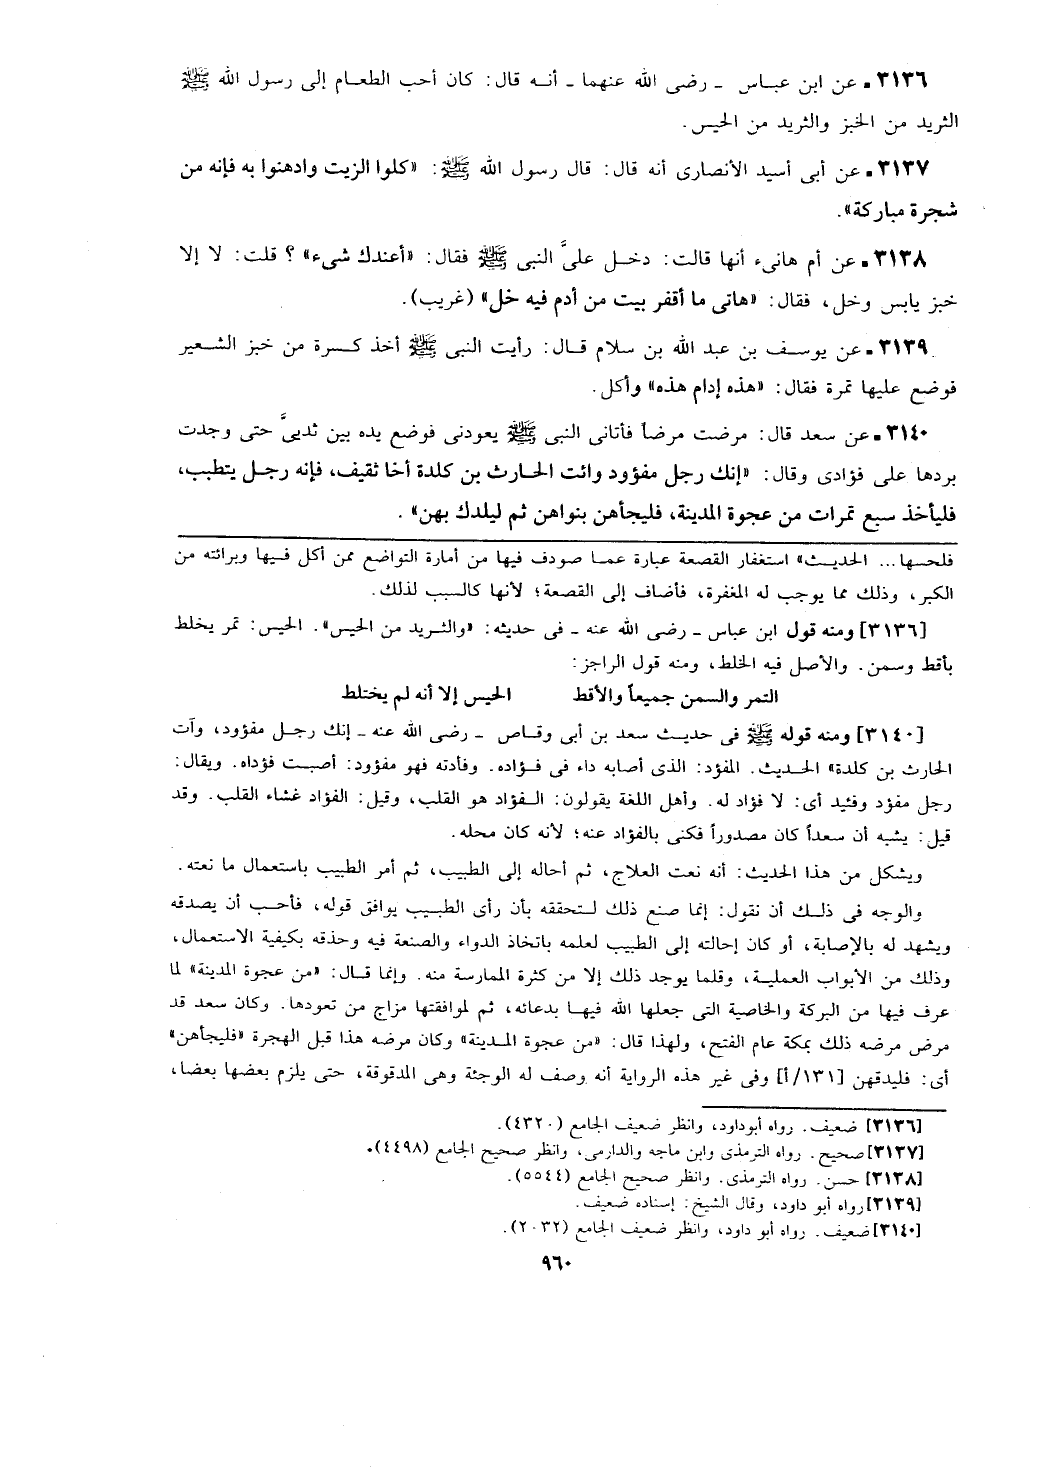 ٣١٣٦ـ عن ابن عباس ـ رضى الله عنهما ـ أنه قال: كان أحب الطعام إلى رسول الله ﷺ
الثريد من الخبز والثريد من الحيس.
٣١٣٧ـ عن أبى أسيد الأنصارى أنه قال: قال رسول الله ﷺ: «كلوا الزيت وادهنوا به فإنه من
شجرة مباركة».
٣١٣٨ـ عن أم هانىء أنها قالت: دخل علىَّ النبى ﷺ فقال: «أعندك شىء» ؟ قلت: لا إلا
خبز يابس وخل، فقال: «هاتى ما أقفر بيت من أدم فيه خل» (غريب).
٣١٣٩ـ عن يوسف بن عبد الله بن سلام قال: رأيت النبى ﷺ أخذ كسرة من خبز الشعير
فوضع عليها تمرة فقال: «هذه إدام هذه» وأكل.
٣١٤٠ـ عن سعد قال: مرضت مرضاً فأتانى النبى ﷺ يعودنى فوضع يده بين ثديىَّ حتى وجدت
بردها على فؤادى وقال: «إنك رجل مفؤود وائت الحارث بن كلدة أخا ثقيف، فإنه رجل يتطبب،
فليأخذ سبع تمرات من عجوة المدينة، فليجأهن بنواهن ثم ليلدك بهن» .
فلحسها... الحديث» استغفار القصعة عبارة عما صودف فيها من أمارة التواضع ممن أكل فيها وبرائته من
الكبر، وذلك مما يوجب له المغفرة، فأضاف إلى القصعة؛ لأنها كالسبب لذلك.
[٣١٣٦] ومنه قول ابن عباس ـ رضى الله عنه ـ فى حديثه: «والثريد من الحيس». الحيس: تمر يخلط
بأقط وسمن. والأصل فيه الخلط، ومنه قول الراجز:
التمر والسمن جميعاً والأقط الحيس إلا أنه لم يختلط
[٣١٤٠] ومنه قوله ﷺ فى حديث سعد بن أبى وقاص ـ رضى الله عنه ـ إنك رجل مفؤود، وآت
الحارث بن كلدة» الحديث. المفؤد: الذى أصابه داء فى فؤاده. وفأدته فهو مفؤود: أصبت فؤداه. ويقال:
رجل مفؤد وفئيد أى: لا فؤاد له. وأهل اللغة يقولون: الفؤاد هو القلب، وقيل: الفؤاد غشاء القلب. وقد
قيل: يشبه أن سعداً كان مصدوراً فكنى بالفؤاد عنه؛ لأنه كان محله.
ويشكل من هذا الحديث: أنه نعت العلاج، ثم أحاله إلى الطبيب، ثم أمر الطبيب باستعمال ما نعته.
والوجه فى ذلك أن نقول: إنما صنع ذلك لتحققه بأن رأى الطبيب يوافق قوله، فأحب أن يصدقه
ويشهد له بالإصابة، أو كان إحالته إلى الطبيب لعلمه باتخاذ الدواء والصنعة فيه وحذقه بكيفية الاستعمال،
وذلك من الأبواب العملية، وقلما يوجد ذلك إلا من كثرة الممارسة منه. وإنما قال: «من عجوة المدينة» لما
عرف فيها من البركة والخاصية التى جعلها الله فيها بدعائه، ثم لموافقتها مزاج من تعودها. وكان سعد قد
مرض مرضه ذلك بمكة عام الفتح، ولهذا قال: «من عجوة المدينة» وكان مرضه هذا قبل الهجرة «فليجأهن»
أى: فليدقهن [١٣١/أ] وفى غير هذه الرواية أنه وصف له الوجئة وهى المدقوقة، حتى يلزم بعضها بعضا،
[٣١٣٦] ضعيف. رواه أبوداود، وانظر ضعيف الجامع (٤٣٢٠).
[٣١٣٧] صحيح. رواه الترمذى وابن ماجه والدارمى، وانظر صحيح الجامع (٤٤٩٨).
[٣١٣٨] حسن. رواه الترمذى. وانظر صحيح الجامع (٥٥٤٤).
[٣١٣٩] رواه أبو داود، وقال الشيخ: إسناده ضعيف.
[٣١٤٠] ضعيف. رواه أبو داود، وانظر ضعيف الجامع (٢٠٣٢).
٩٦٠